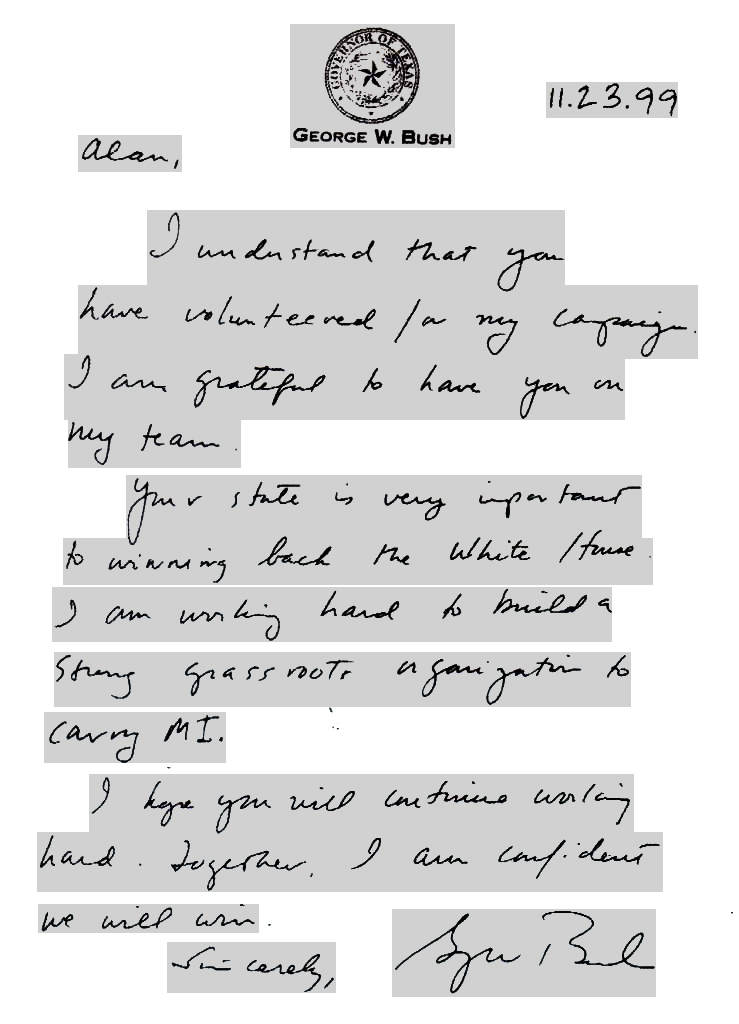 GOVERNOR OF TEXAS
GEORGE W. BUSH
11.23.99
Alan,
I understand that you
have volunteered for my campaign.
I am grateful to have you on
my team.
Your state is very important
to winning back the White House.
I am working hard to build a
strong grassroots organization to
carry MI.
I hope you will continue working
hard. Together, I am confident
we will win.
Sincerely,
George Bush